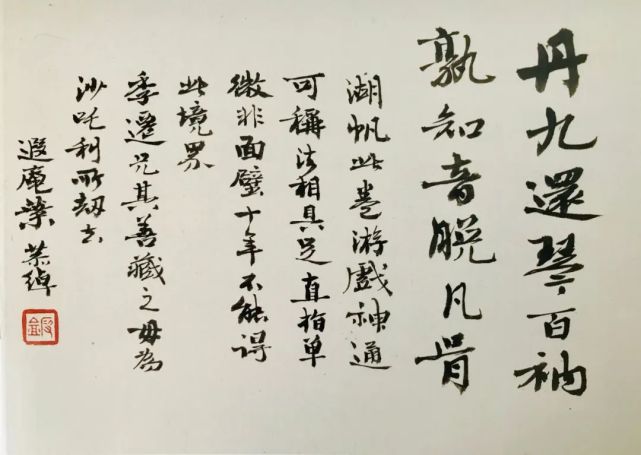 丹九還琴百衲
孰知音脫凡骨
湖帆此卷游戲神通
可稱法相具足直指單
微非面壁十年不能得
此境界
季遷兄其善藏之毋為
沙吒利所劫去
遐庵葉恭綽